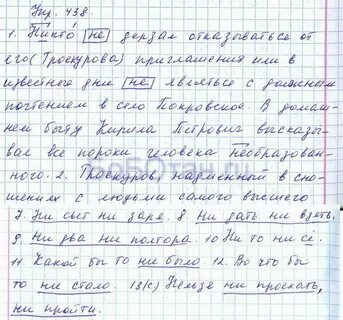 Упр. 438.
1. Никто́ не дерзал отказываться от
его (Троекурова) приглашения или в
известные дни не являться с должным
почтением в село Покровское. В домаш-
нем быту Кирила Петрович выказы-
вал все пороки человека необразован-
ного. 2. Троекуров, надменный в сно-
шениях с людьми самого высшего
7. Ни свет ни заря. 8 Ни дать ни взять.
9 Ни два ни полтора. 10 Ни то ни сё.
11 Какой бы то ни было. 12. Во что бы
то ни стало. 13(с) Нельзя ни проехать,
ни пройти.